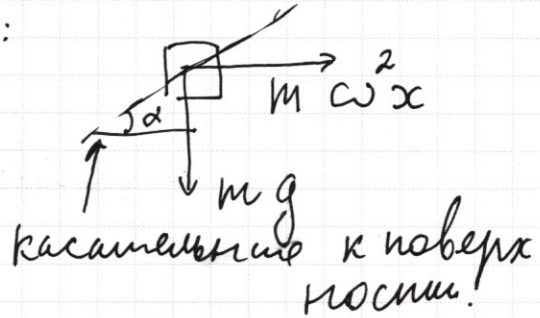 :
α
m ω²x
mg
касательные к поверх
ности!